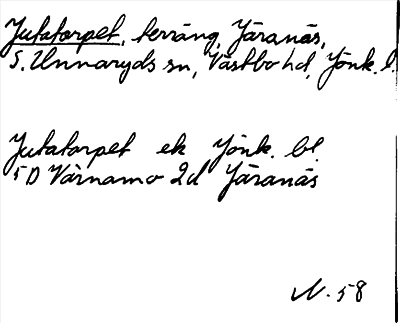 Jutatorpet, terräng, Järanäs,
S. Unnaryds sn, Västbo hd, Jönk. l.
Jutatorpet ek Jönk. bl.
5D Värnamo 2d Järanäs
N. 58